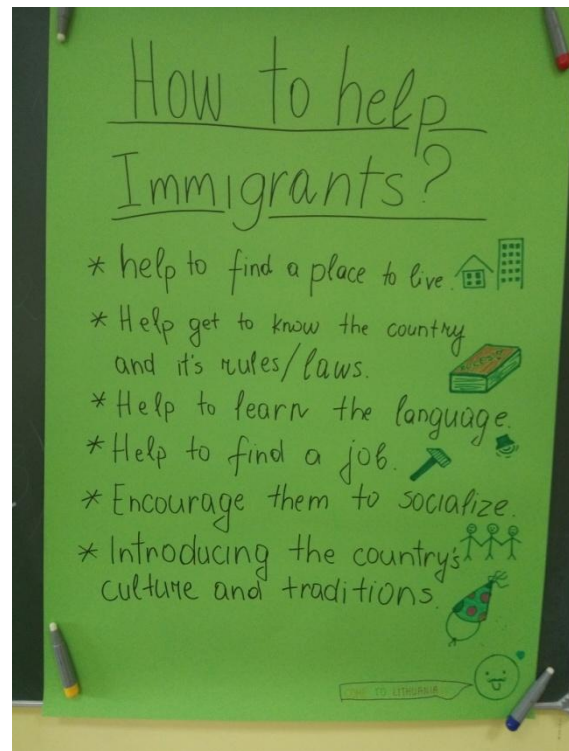 How to help
Immigrants?
* help to find a place to live.
* Help get to know the country
and it's rules/laws.
* Help to learn the language.
* Help to find a job.
* Encourage them to socialize.
* Introducing the country's
culture and traditions.
COME TO LITHUANIA